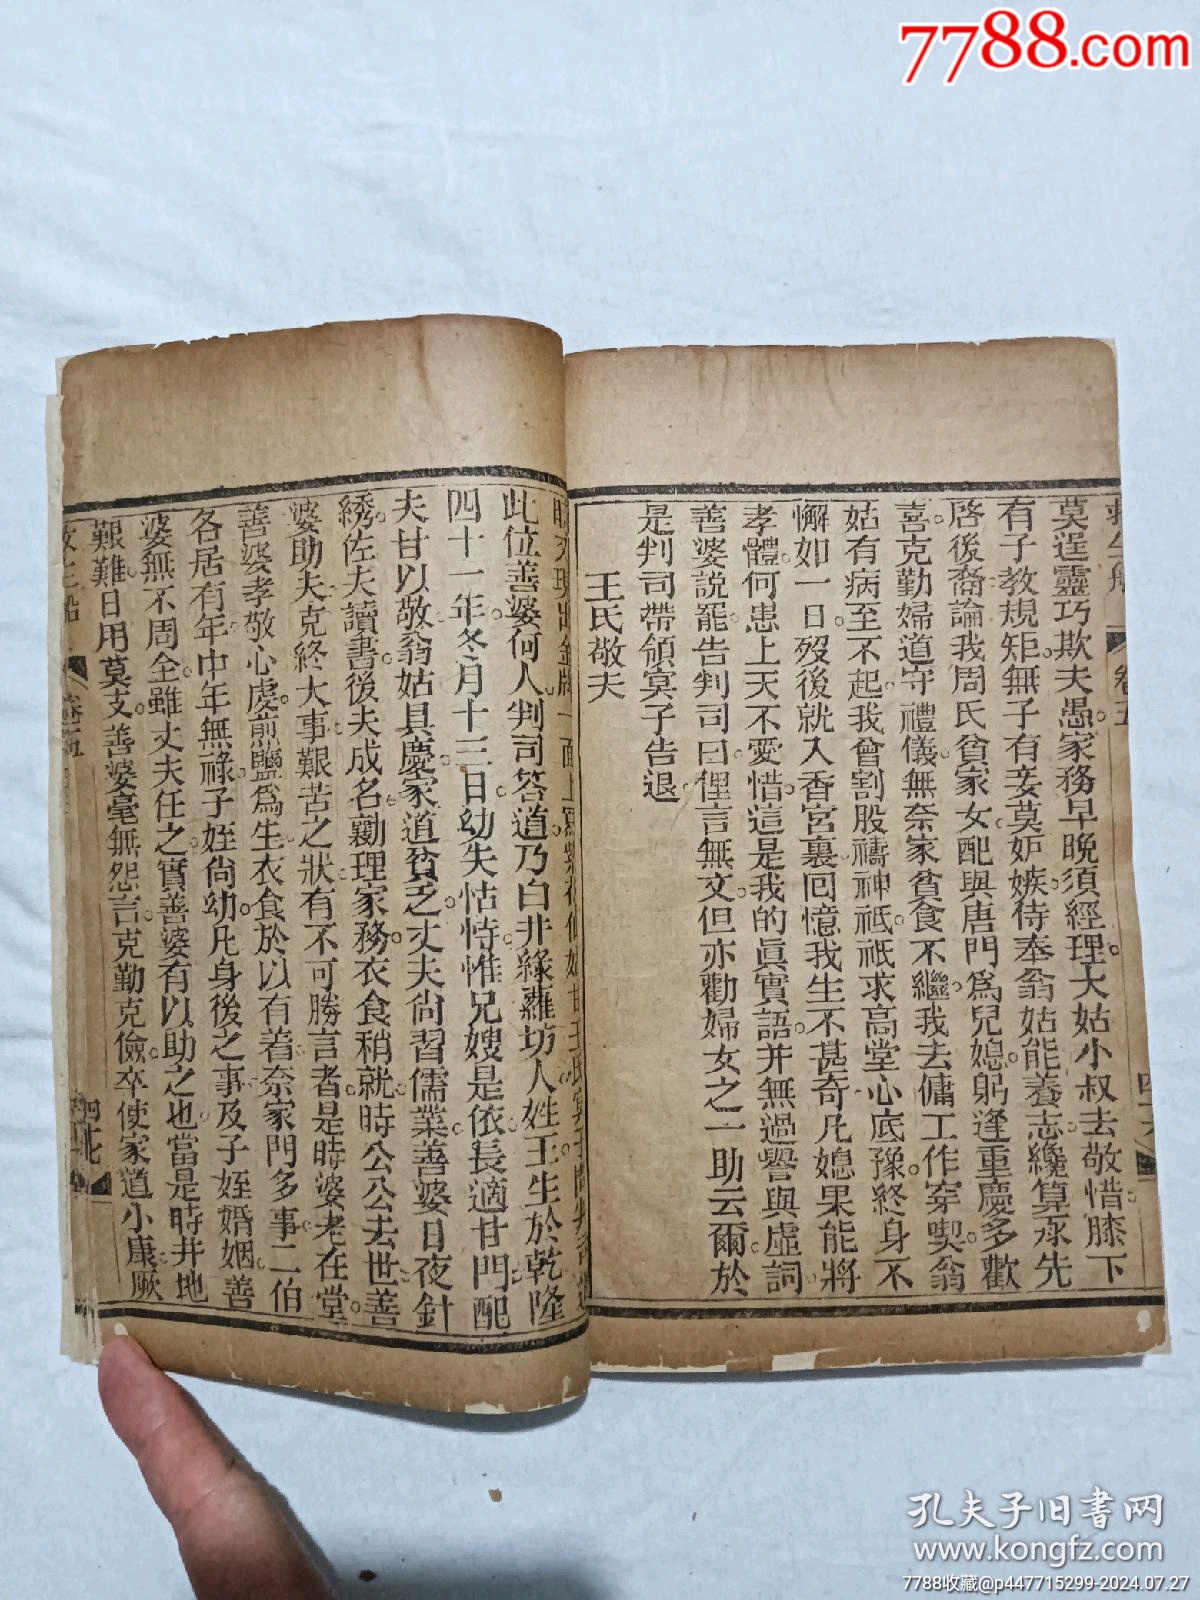 7788.com
救生船 卷五 四六
莫逞靈巧欺夫愚。家務早晚須經理。大姑小叔去敬惜。膝下
有子教規矩。無子有妾莫妒嫉。侍奉翁姑能養志。纔算承先
啓後裔。論我周氏貧家女。配與唐門爲兒媳。躬逢重慶多歡
喜。克勤婦道守禮儀。無奈家貧食不繼。我去傭工作穿喫。翁
姑有病至不起。我曾割股禱神祗。祇求高堂心底豫。終身不
懈如一日。歿後就入香宮裏。回憶我生不甚奇。凡媳果能將
孝體。何患上天不愛惜。這是我的眞實語。并無過譽與虛詞
善婆説罷。告判司曰。俚言無文。但亦勸婦女之一助云爾。於
是判司帶領冥子告退。
王氏敬夫
此位善婆何人。判司答道。乃白井緣蘿坊人。姓王。生於乾隆
四十一年冬月十三日。幼失怙恃。惟兄嫂是依。長適甘門。配
夫甘以敬。翁姑具慶。家道貧乏。丈夫尙習儒業。善婆日夜針
綉。佐夫讀書。後夫成名。勷理家務。衣食稍就。時公公去世。善
婆助夫。克終大事。艱苦之狀。有不可勝言者。是時婆老在堂。
善婆孝敬心虔。煎鹽爲生。衣食於以有着。奈家門多事。二伯
各居有年。中年無祿。子姪尙幼。凡身後之事。及子姪婚姻。善
婆無不周全。雖丈夫任之。實善婆有以助之也。當是時。井地
艱難。日用莫支。善婆毫無怨言。克勤克儉。卒使家道小康。厥
救生船 卷五 四七
孔夫子旧書网
www.kongfz.com
7788收藏@p447715299-2024.07.27